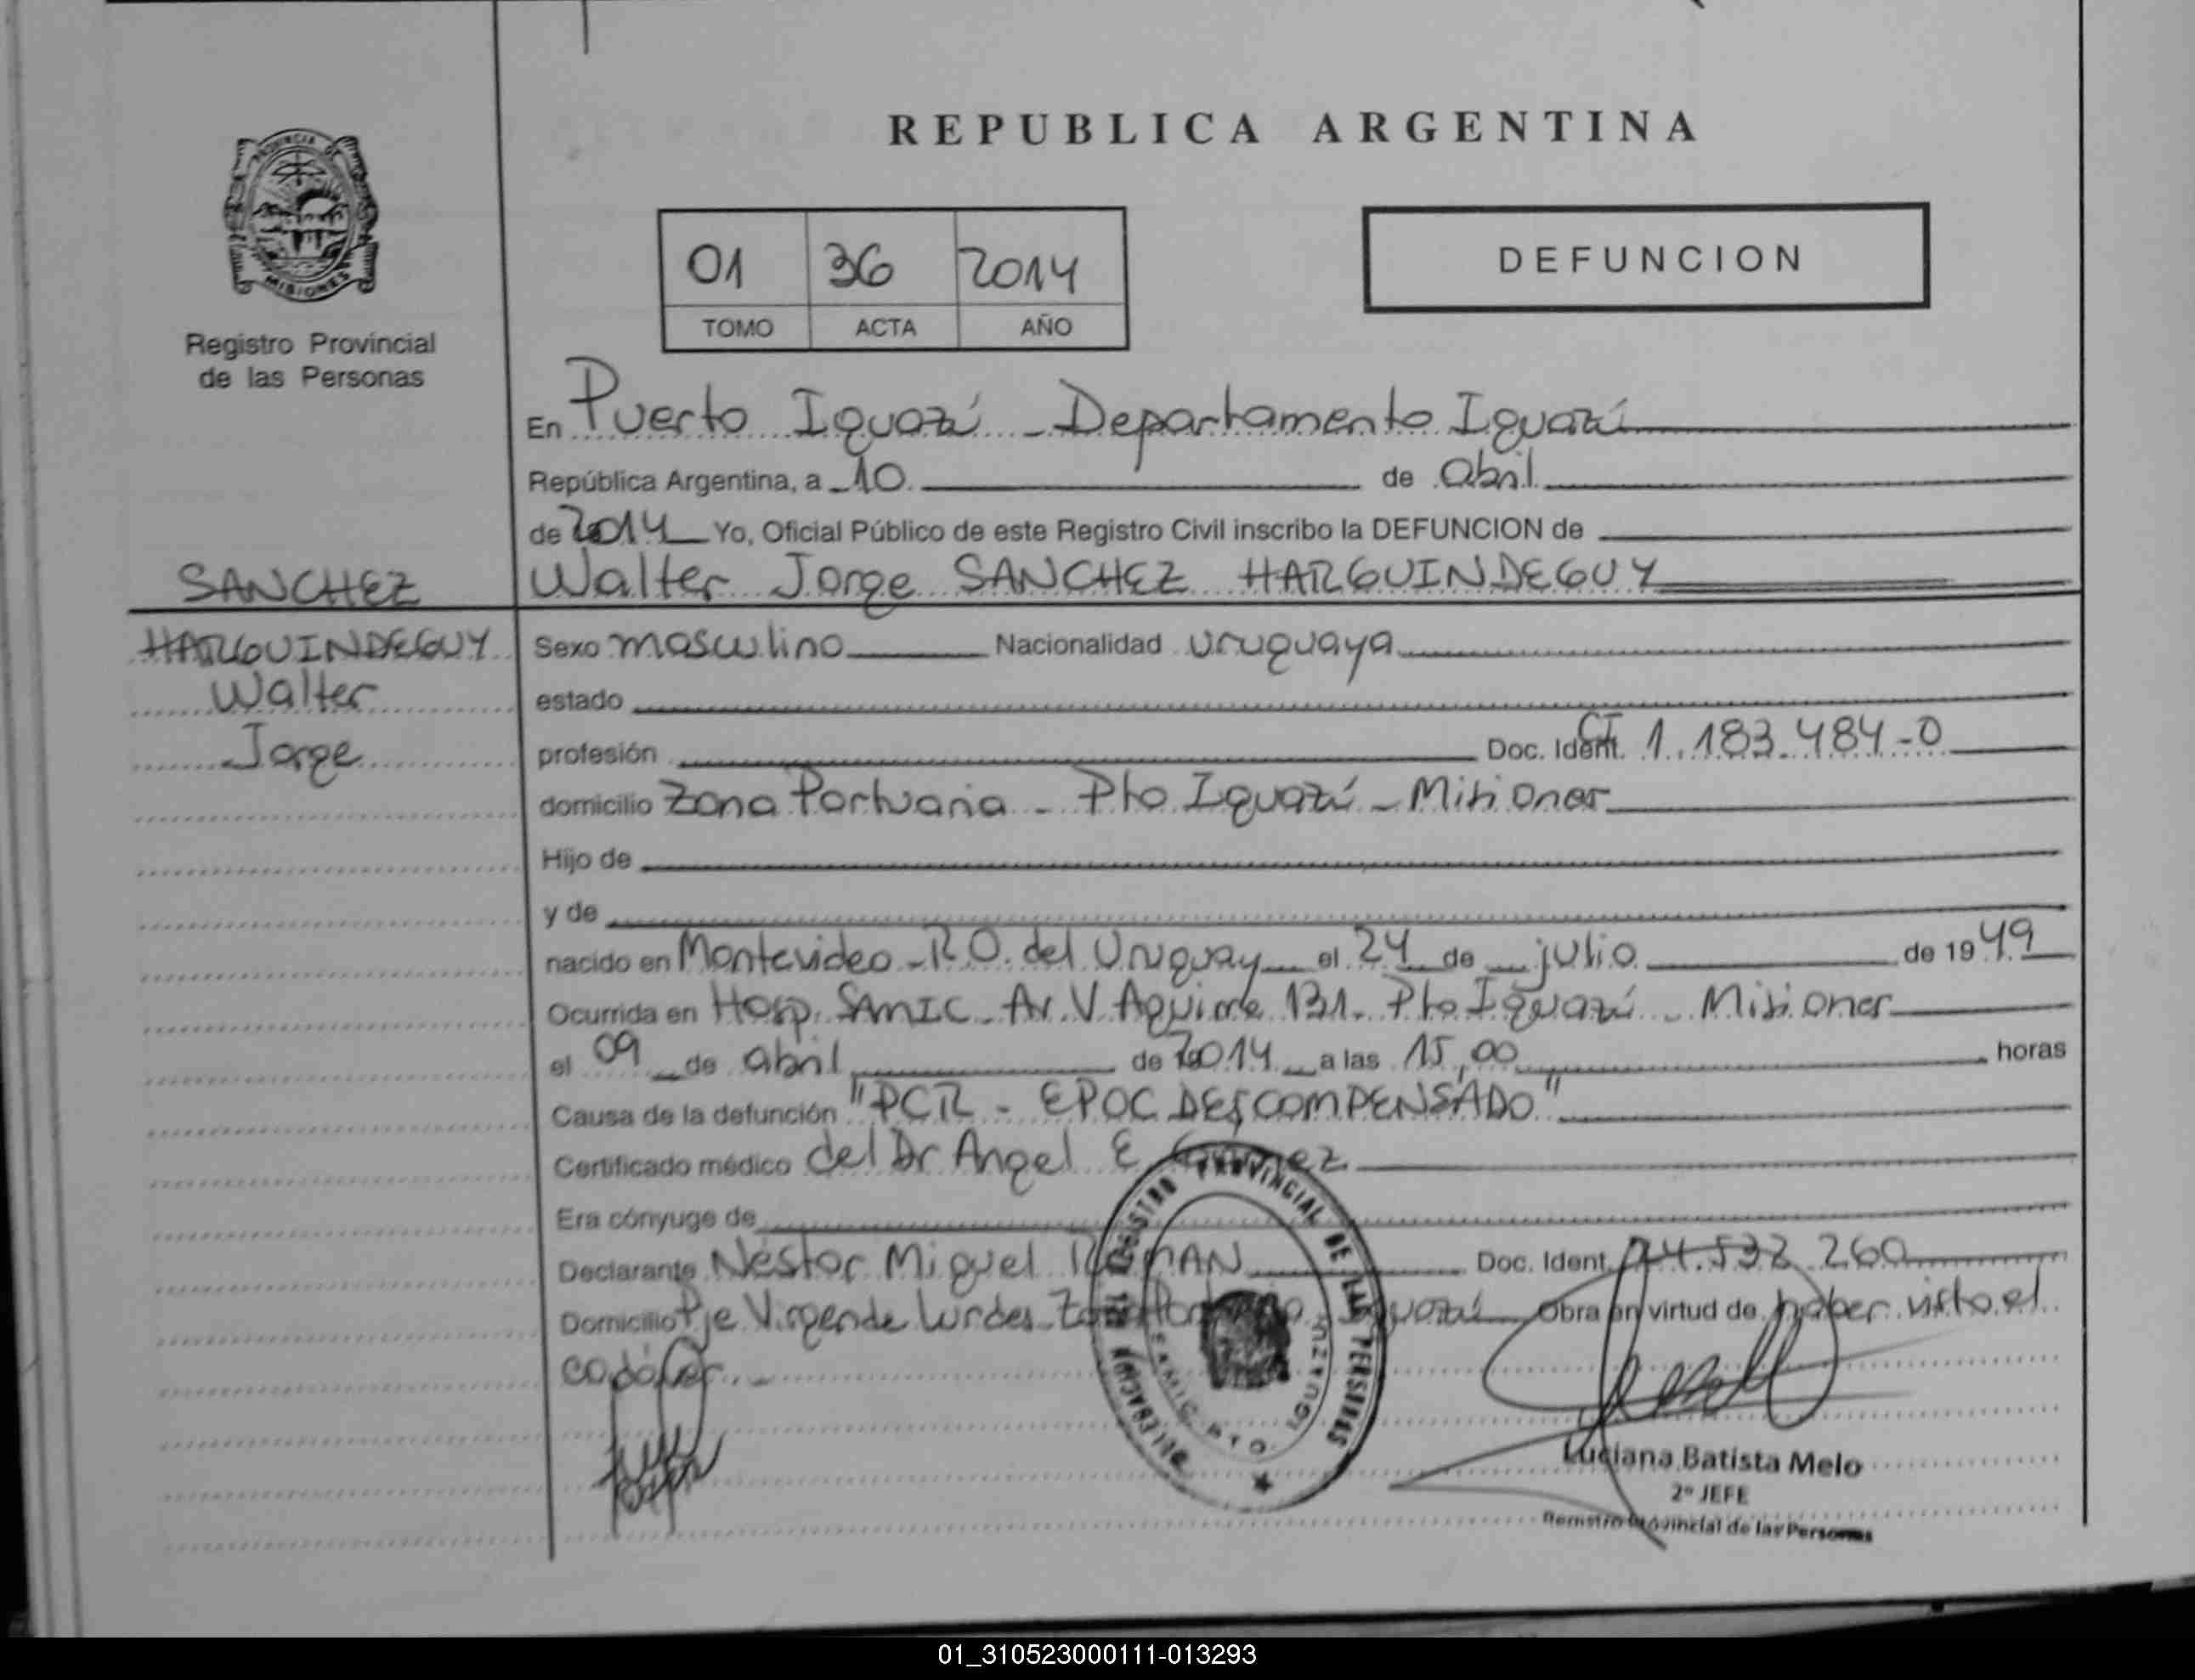 REPUBLICA ARGENTINA
PROVINCIA DE
MISIONES
Registro Provincial
de las Personas
01 36 2014
TOMO ACTA AÑO
DEFUNCION
En Puerto Iguazú - Departamento Iguazú
República Argentina, a 10 de abril
de 2014 Yo, Oficial Público de este Registro Civil inscribo la DEFUNCION de
Walter Jorge SANCHEZ HARGUINDEGUY
SANCHEZ
HARGUINDEGUY
Walter
Jorge
Sexo masculino Nacionalidad uruguaya
estado
profesión Doc. Ident. CI 1.183.484-0
domicilio Zona Portuaria - Pto Iguazú - Misiones
Hijo de
y de
nacido en Montevideo - R.O. del Uruguay el 24 de julio de 1949
Ocurrida en Hosp. SAMIC - Av. V. Aguirre 131 - Pto Iguazú - Misiones
el 09 de abril de 2014 a las 15,00 horas
Causa de la defunción "PCR - EPOC DESCOMPENSADO"
Certificado médico del Dr Angel E
Era cónyuge de
Declarante Néstor Miguel Doc. Ident. 24.532.260
Domicilio Pje Virgen de Lurdes - Iguazú Obra en virtud de haber visto el
cadáver -
REGISTRO PROVINCIAL DE LAS PERSONAS
PTO. IGUAZU
Luciana Batista Melo
2º JEFE
Registro Provincial de las Personas
01_310523000111-013293